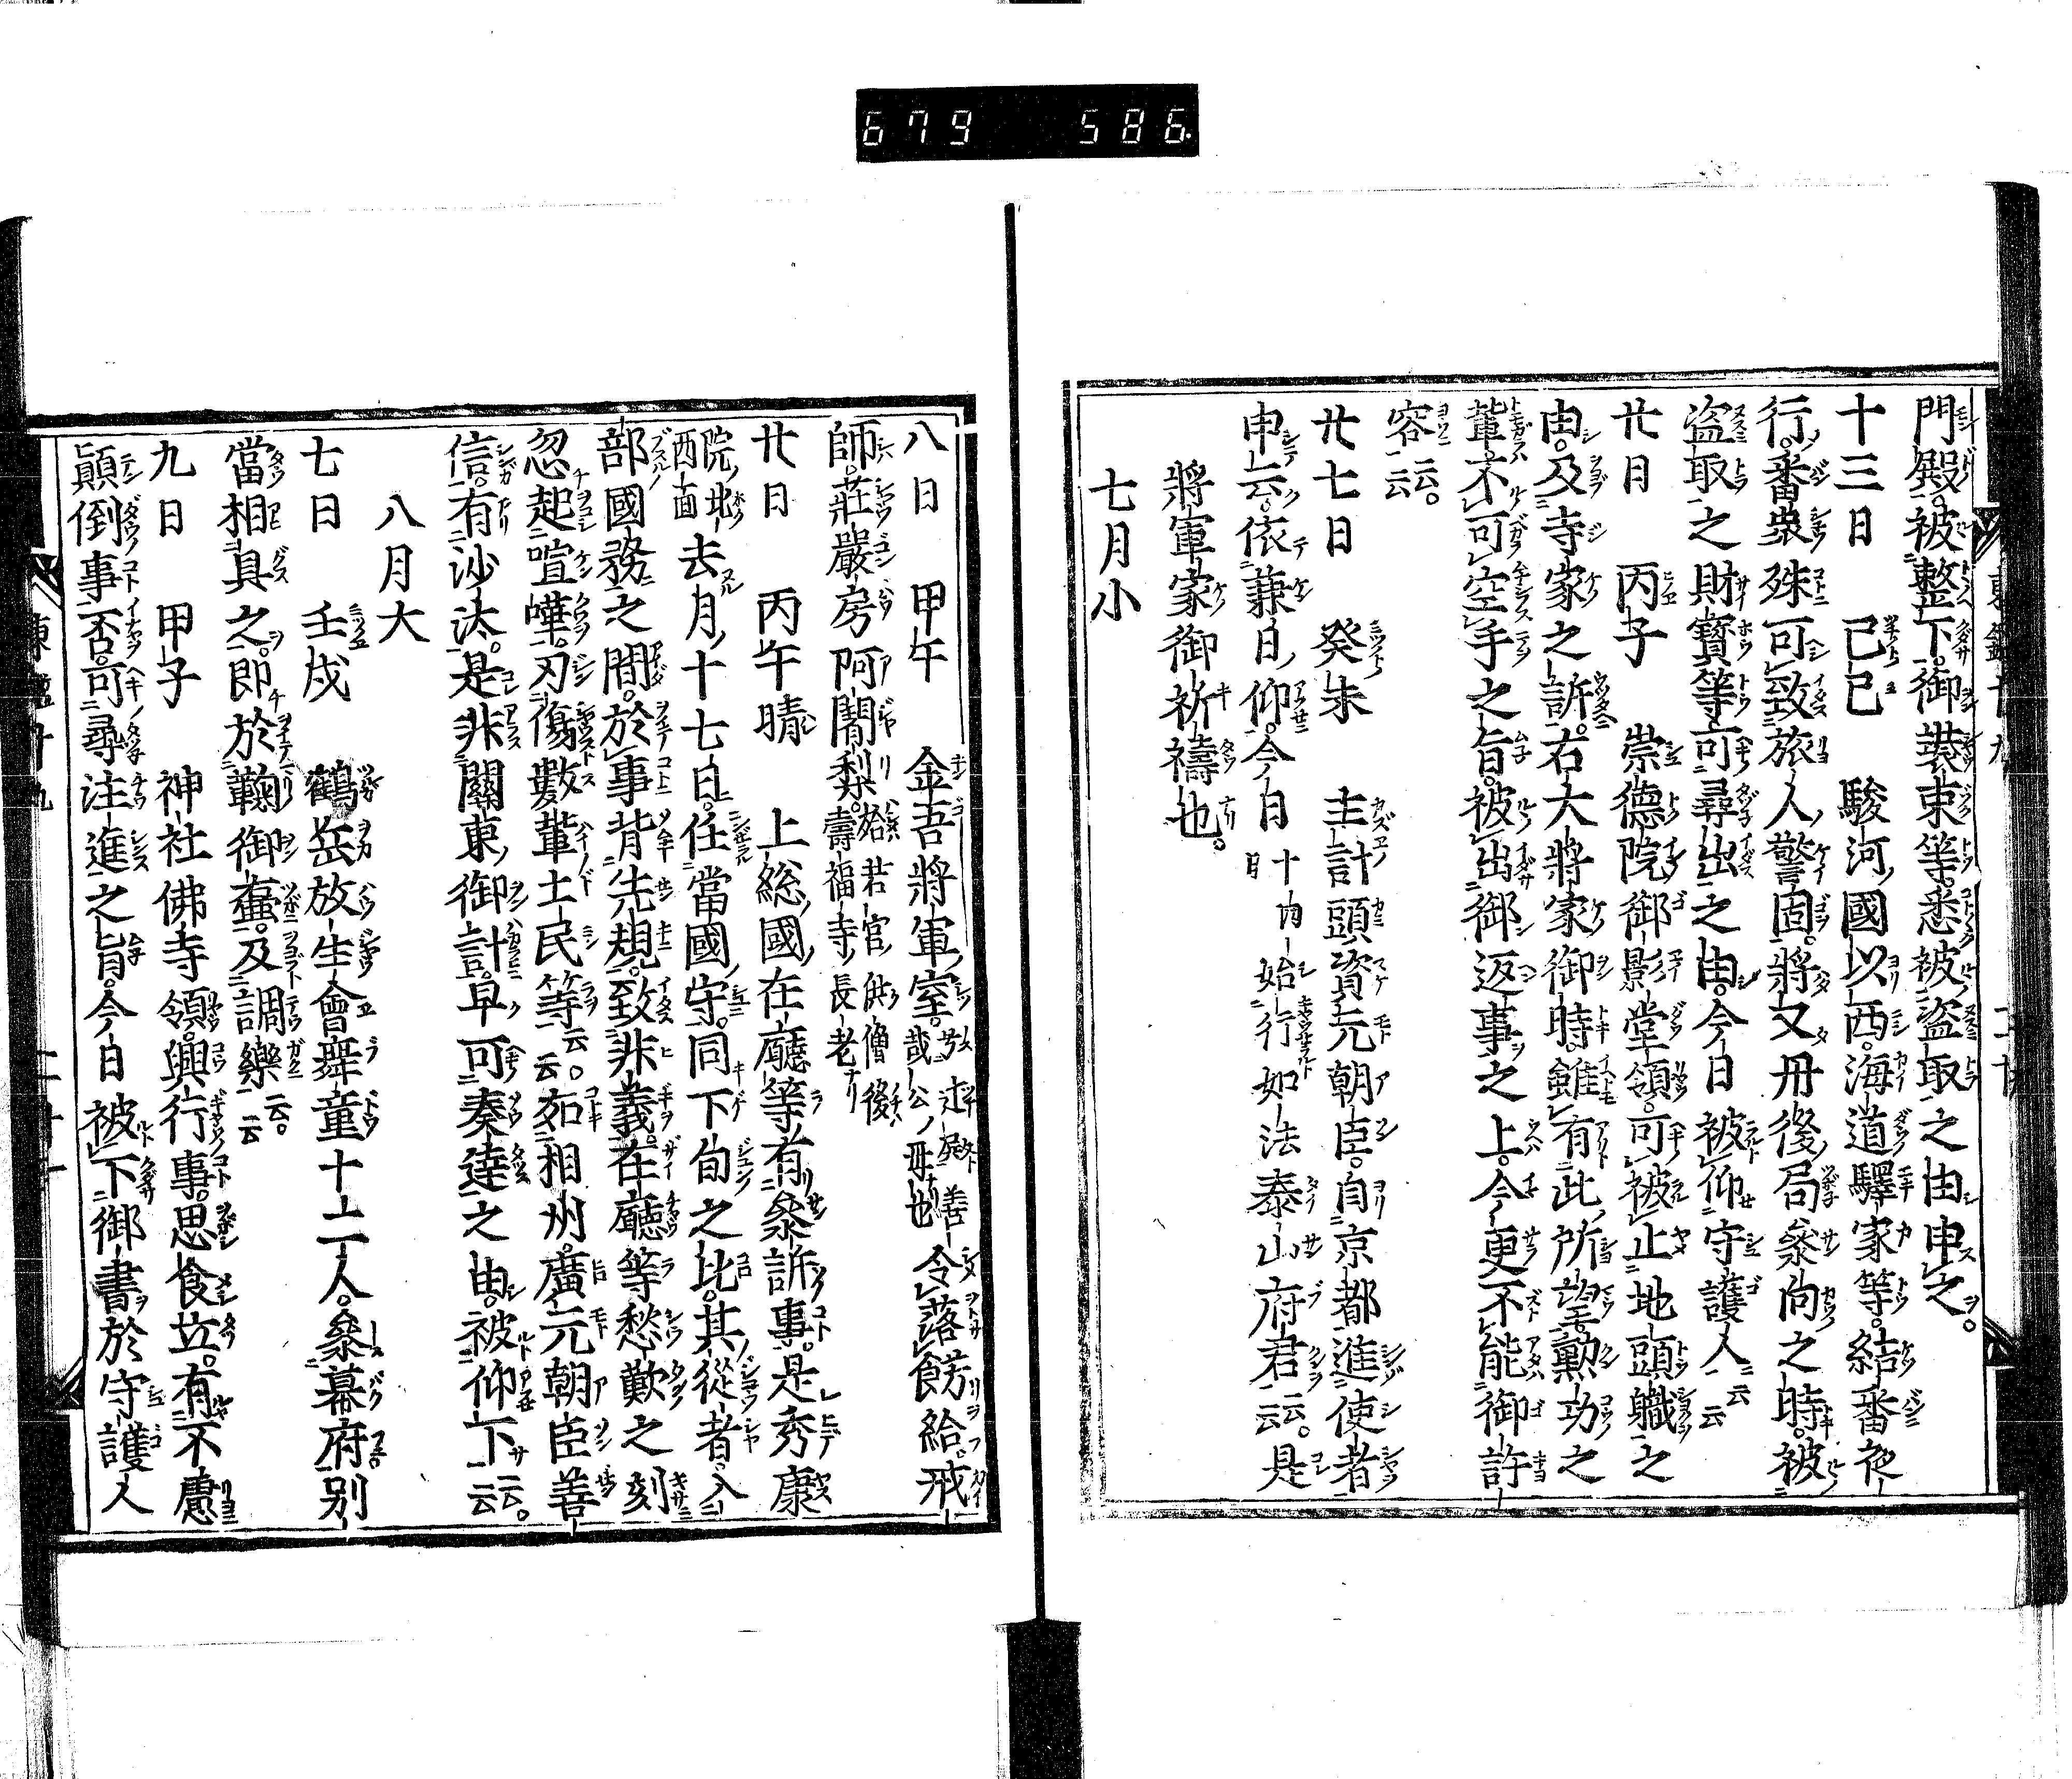 679 586
門殿。被整下。御裝束等。悉被盗取之由申之。
十三日 己巳 駿河國以西。海道驛家等。結番夜
行。番衆殊可致旅人警固。將又丹後局參向之時。被
盗取之財寳等。可尋出之由。今日被仰守護人云云
廿日 丙子 崇德院御影堂領。可被止地頭職之
由。及寺家之訴。右大將家御時。雖有此所望。勲功之
輩。不可空手之旨。被出御返事之上。今更不能御許
容云云。
廿七日 癸未 主計頭資元朝臣。自京都進使者
申云。依兼日仰。今日 始行如法泰山府君云云。是
將軍家御祈禱也。
七月小
八日 甲午 金吾將軍室。令落餝給。戒
師。莊嚴房阿闍梨。壽福寺長老
廿日 丙午晴 上総國在廳等。有參訴事。是秀康
院北西面 去月十七日。任當國守。同下旬之比。其從者入
部國務之間。於事背先規。致非義。在廳等愁歎之刻
忽起喧嘩。刃傷數輩土民等云云。如相州。廣元朝臣善
信。有沙汰。是非關東御計。早可奏達之由。被仰下云云。
八月大
七日 壬戌 鶴岳放生會舞童十二人。參幕府別
當相具之。即於鞠御壷。及調樂云云
九日 甲子 神社佛寺領。興行事。思食立。有不慮
顛倒事否。可尋注進之旨。今日被下御書於守護人